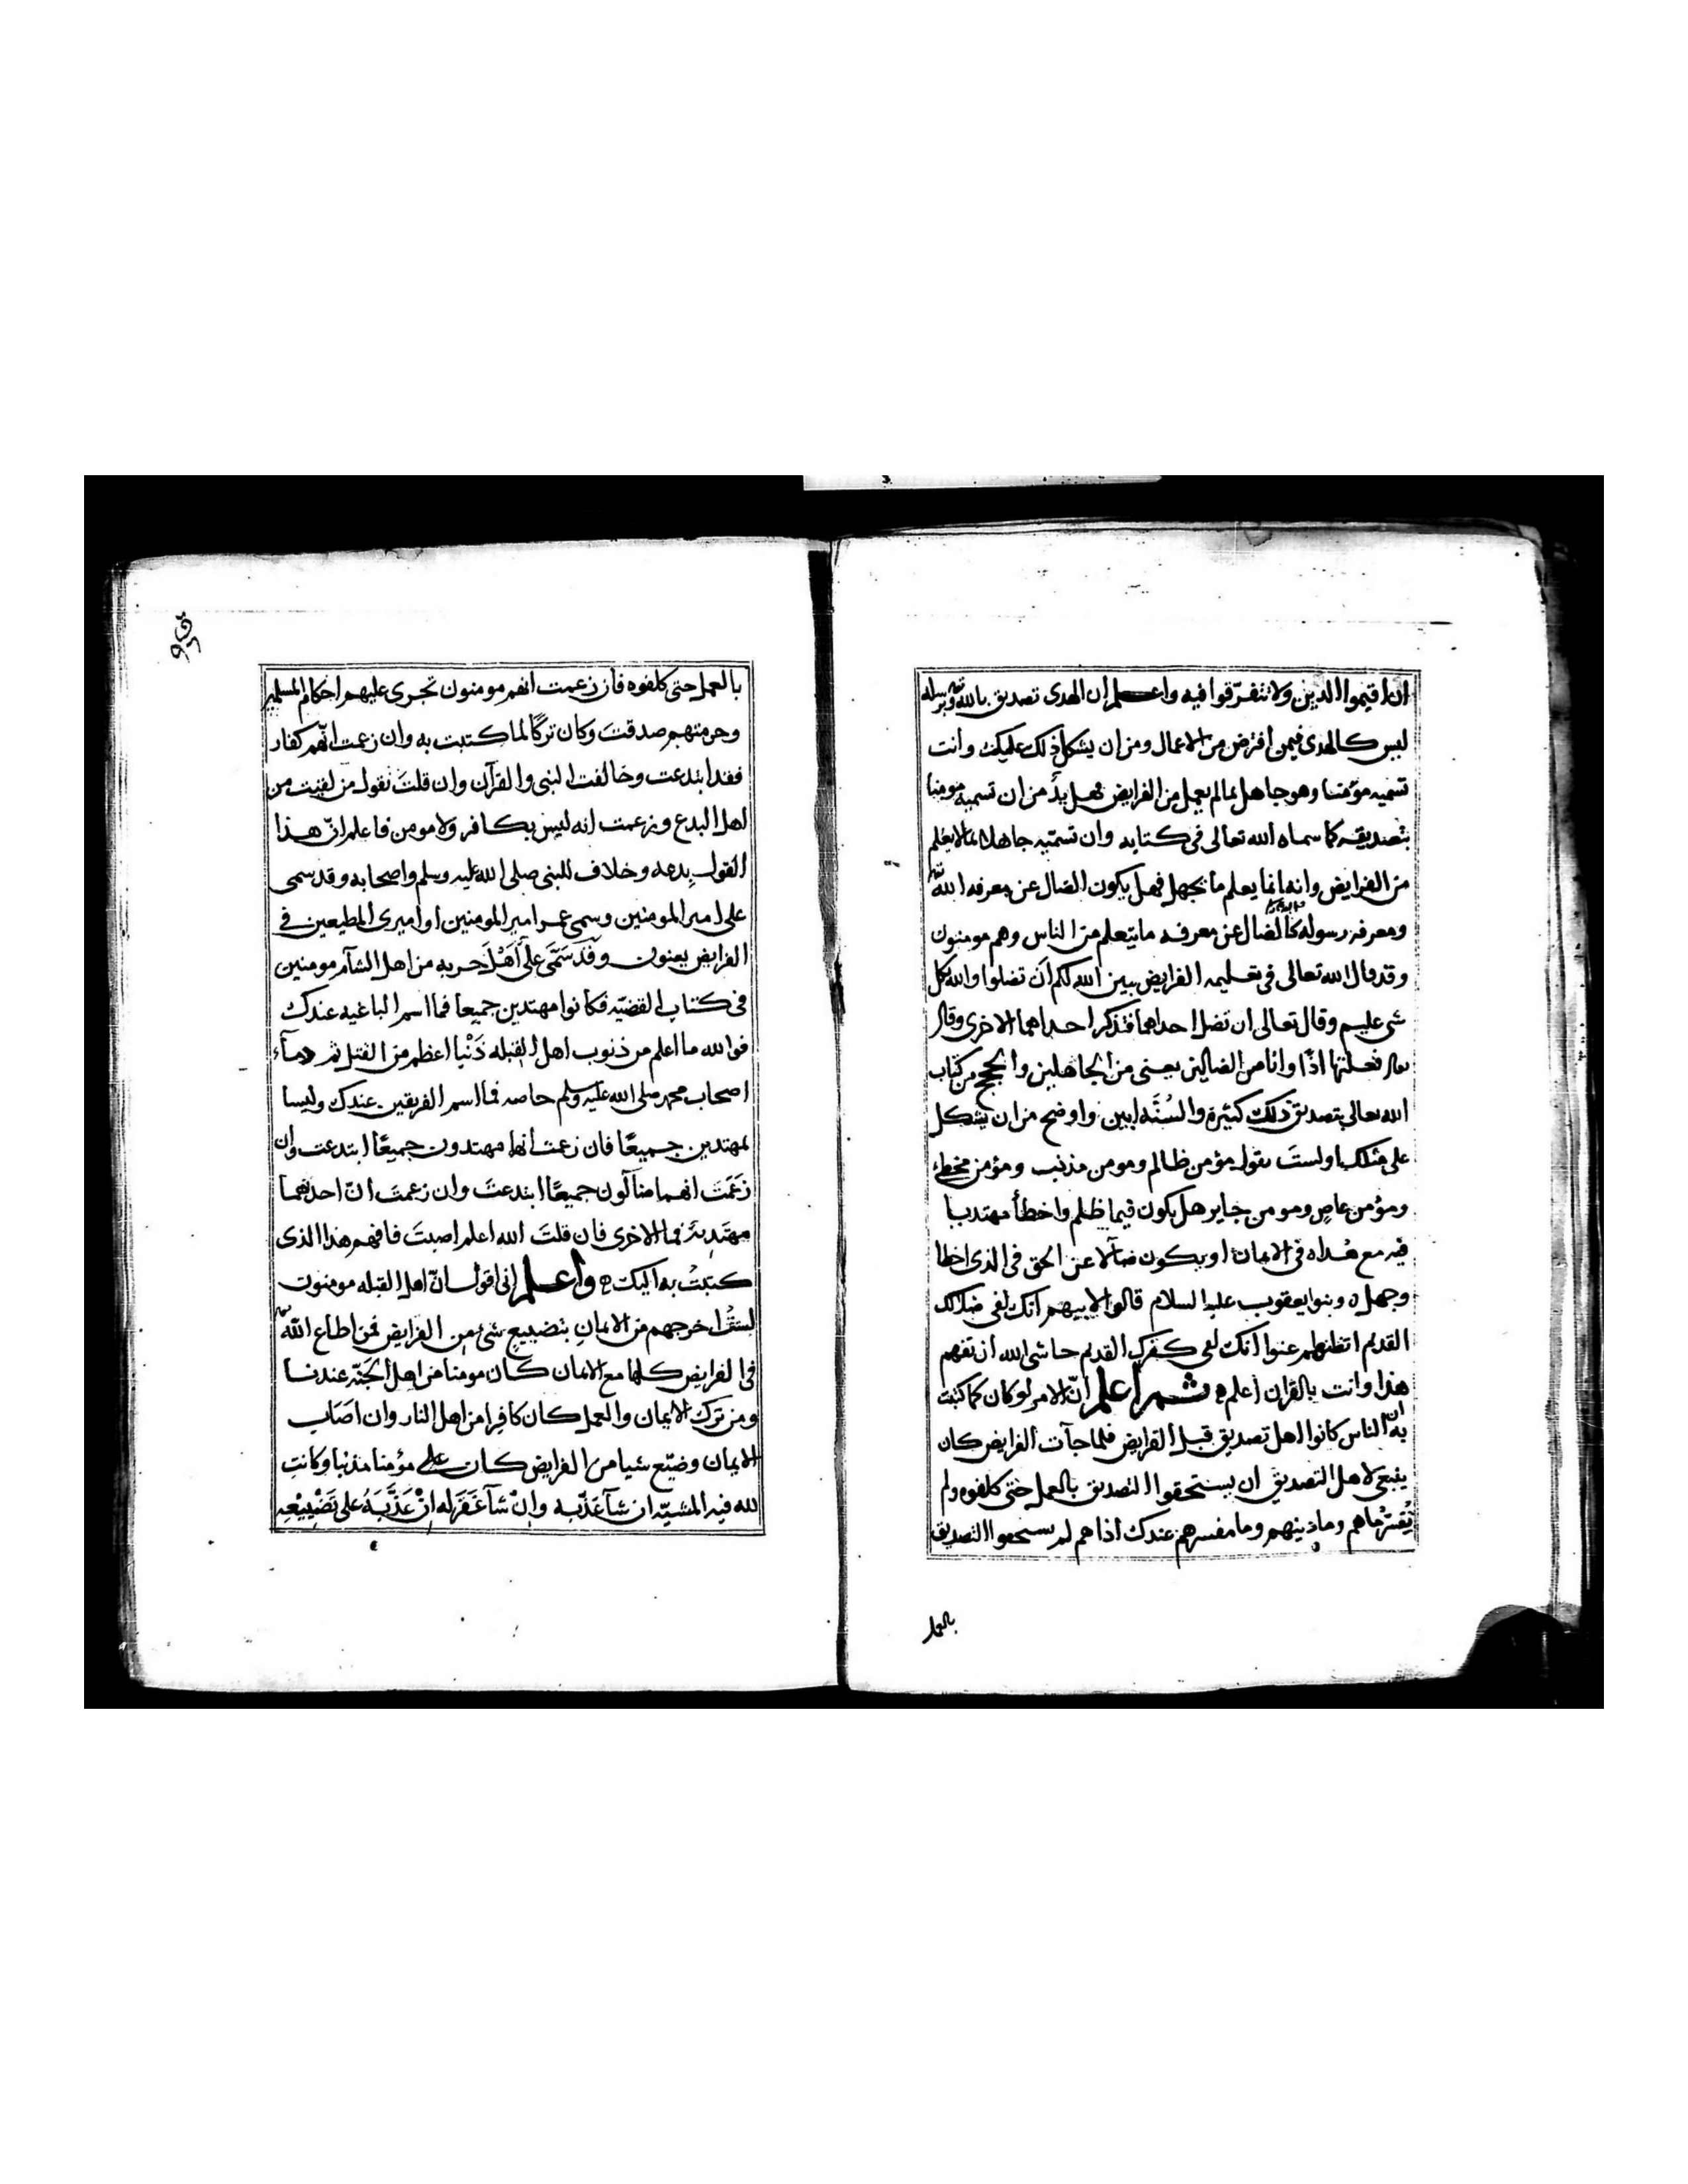 ان اقيموا الدين ولا تتفرقوا فيه واعلم ان الهدى تصديق بالله تعالى وبرسله
ليس كالهدى فيمن افترض من الاعمال ومن ان يشكل ذلك عليك وانت
تسميه مؤمنا وهو جاهل بما لم يعمل من الفرايض فهل بدّ من ان تسميه مومنا
بتصديقه كما سماه الله تعالى فى كتابه وان تسمّيه جاهلا بما لا يعلم
من الفرايض وانه انما يعلم ما يجهل فهل يكون الضال عن معرفه الله تعالى
ومعرفه رسوله كالضال عن معرفه ما يتعلم من الناس وهم مومنون
وقد قال الله تعالى فى تعليمه الفرايض يبين الله لكم اَن تضلوا والله بكل
شى عليم وقال تعالى ان تضل احداهما فتذكر احداهما الاخرى وقال
تعالى فعلتها اذًا وانا من الضالين يعنى من الجاهلين والحجج من كتاب
الله تعالى بتصديق ذلك كثيرة والسُنَّه ابين واوضح من ان يشكل
على مثلك اولستَ تقول مؤمن ظالم ومومن مذنب ومؤمن مخطء
ومؤمن عاصٍ ومومن جاير هل يكون فيما ظلم واخطأ مهتديا
فيه مع هُداه فى الايمان او يكون ضآلا عن الحق فى الذى اخطا
وجهل ه وبنوا يعقوب عليه السلام قالوا لابيهم انك لفى ضلالك
القديم اتظنهم عنوا انك لفى كفرك القديم حاشى الله ان تفهم
هذا وانت بالقران اعلم ه ثم اعلم انّ الامر لو كان كما كتبت
به ان الناس كانوا اهل تصديق قبل الفرايض فلما جآت الفرايض كان
ينبغى لاهل التصديق ان يستحقوا التصديق بالعمل حتى كلفوه ولم
تُفسّر ما هم وما دينهم وما مفسرهم عندك اذا هم لم يستحقوا التصديق
بالعمل
بالعمل حتى كلفوه فان زعمت انهم مومنون تجرى عليهم احكام المسلمين
وحرمتهم صدقت وكان تركًا لما كتبت به وان زعمت انّهم كفار
فقد ابتدعت وخالفت النبى والقرآن وان قلتَ بقول من لقيت من
اهل البدع وزعمت انه ليس بكافر ولا مومن فاعلم انّ هذا
القول بدعه وخلاف للنبى صلى الله عليه وسلم واصحابه وقد سمى
على امير المومنين وسمى عمر امير المومنين او اميرى المطيعين فى
الفرايض يعنون وقد سَمَّى علىّ اَهْل حربه من اهل الشآم مومنين
فى كتاب القضيّه فكانوا مهتدين جميعا فما اسم الباغيه عندك
فوالله ما اعلم من ذنوب اهل القبله ذَنْبا اعظم من القتل ثم دمآء
اصحاب محمد صلى الله عليه وسلم خاصه فما اسم الفريقين عندك وليسا
بمهتدين جميعًا فان زعمت انهما مهتدون جميعًا ابتدعت وان
زَعَمَتَ انهما ضآلون جميعًا ابتدعتَ وان زعمتَ انّ احدهما
مهتدِيَة فما الاخرى فان قلتَ الله اعلم اصبتَ فافهم هذا الذى
كتبتُ به اليك ه واعلم انى اقول انّ اهل القبله مومنون
لستُ اخرجهم من الايمانِ بتضييعِ شئ من الفرايض فمن اطاع الله تعالى
فى الفرايض كلها مع الايمان كان مومنا من اهل الجَنّه عندنا
ومن ترك الايمان والعمل كان كافِرا من اهل النار وان اصَابَ
الايمان وضيّع شيا من الفرايض كان مؤمنا مذنبا وكانت
لله فيه المشيّه ان شآ عَذّبه وانْ شآ غَفَرَ له انْ عَذَّبَهُ على تَضْيِيْعِهِ